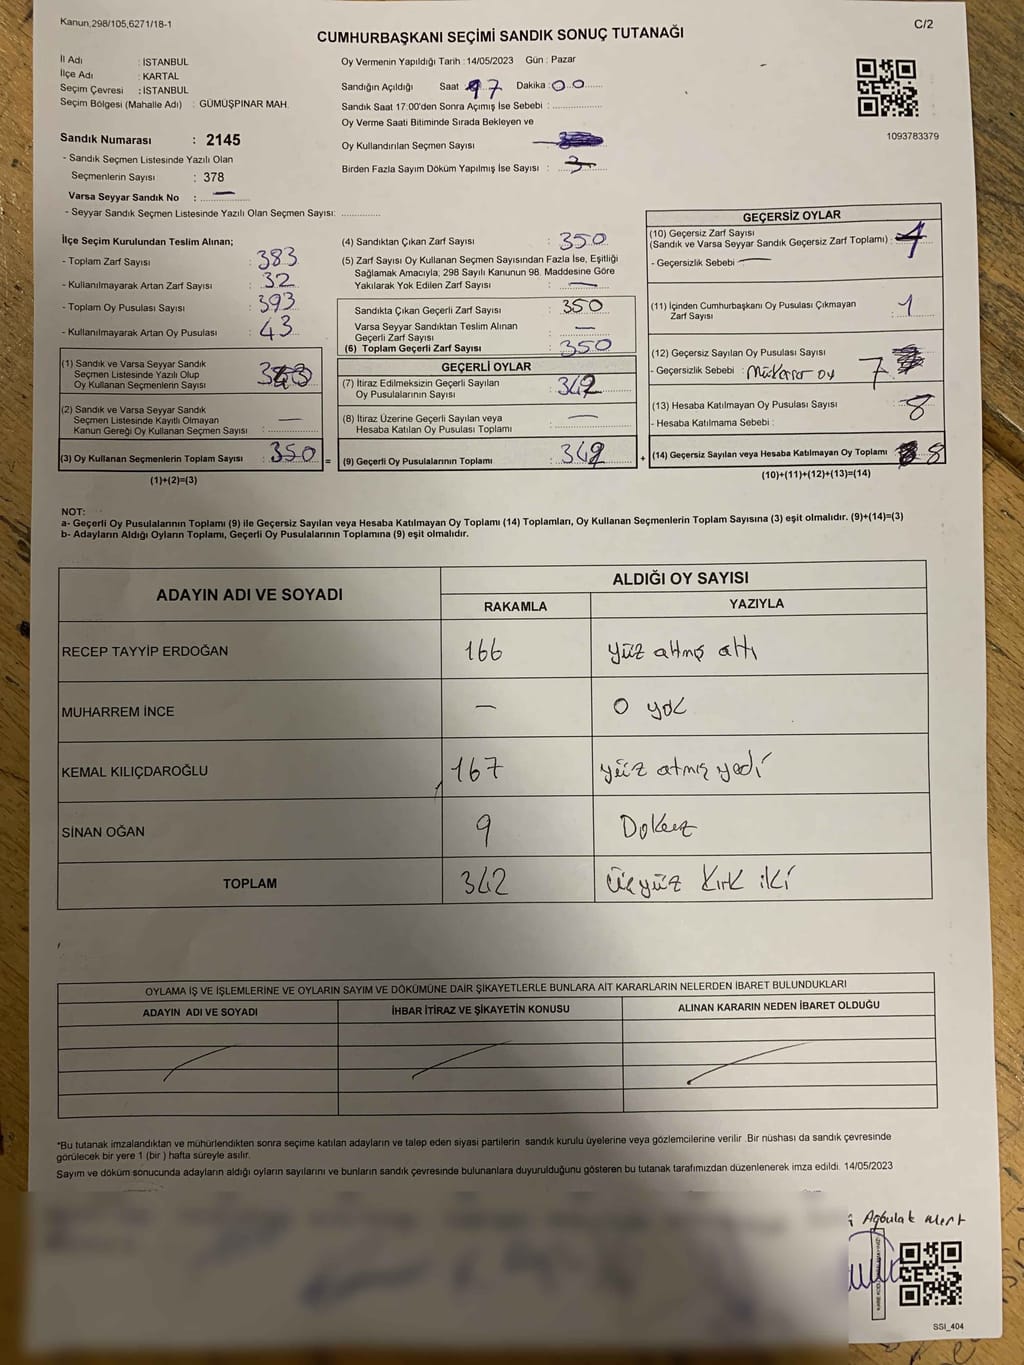 Kanun,298/105,6271/18-1
C/2
CUMHURBAŞKANI SEÇİMİ SANDIK SONUÇ TUTANAĞI
İl Adı : İSTANBUL
İlçe Adı : KARTAL
Seçim Çevresi : İSTANBUL
Seçim Bölgesi (Mahalle Adı) : GÜMÜŞPINAR MAH.
Sandık Numarası : 2145
- Sandık Seçmen Listesinde Yazılı Olan
Seçmenlerin Sayısı : 378
Varsa Seyyar Sandık No : —
- Seyyar Sandık Seçmen Listesinde Yazılı Olan Seçmen Sayısı: ..............
Oy Vermenin Yapıldığı Tarih : 14/05/2023 Gün : Pazar
Sandığın Açıldığı Saat 17 Dakika : 00
Sandık Saat 17:00'den Sonra Açımış İse Sebebi :
Oy Verme Saati Bitiminde Sırada Bekleyen ve
Oy Kullandırılan Seçmen Sayısı
Birden Fazla Sayım Döküm Yapılmış İse Sayısı :
1093783379
İlçe Seçim Kurulundan Teslim Alınan;
- Toplam Zarf Sayısı : 383
- Kullanılmayarak Artan Zarf Sayısı : 32
- Toplam Oy Pusulası Sayısı : 393
- Kullanılmayarak Artan Oy Pusulası : 43
(1) Sandık ve Varsa Seyyar Sandık
Seçmen Listesinde Yazılı Olup
Oy Kullanan Seçmenlerin Sayısı :
(2) Sandık ve Varsa Seyyar Sandık
Seçmen Listesinde Kayıtlı Olmayan
Kanun Gereği Oy Kullanan Seçmen Sayısı : —
(3) Oy Kullanan Seçmenlerin Toplam Sayısı : 350 =
(1)+(2)=(3)
(4) Sandıktan Çıkan Zarf Sayısı : 350
(5) Zarf Sayısı Oy Kullanan Seçmen Sayısından Fazla İse, Eşitliği
Sağlamak Amacıyla; 298 Sayılı Kanunun 98. Maddesine Göre
Yakılarak Yok Edilen Zarf Sayısı : —
Sandıkta Çıkan Geçerli Zarf Sayısı : 350
Varsa Seyyar Sandıktan Teslim Alınan
Geçerli Zarf Sayısı : —
(6) Toplam Geçerli Zarf Sayısı : 350
GEÇERLİ OYLAR
(7) İtiraz Edilmeksizin Geçerli Sayılan
Oy Pusulalarının Sayısı : 342
(8) İtiraz Üzerine Geçerli Sayılan veya
Hesaba Katılan Oy Pusulası Toplamı : —
(9) Geçerli Oy Pusulalarının Toplamı : 342 +
GEÇERSİZ OYLAR
(10) Geçersiz Zarf Sayısı
(Sandık ve Varsa Seyyar Sandık Geçersiz Zarf Toplamı) :
- Geçersizlik Sebebi —
(11) İçinden Cumhurbaşkanı Oy Pusulası Çıkmayan
Zarf Sayısı : 1
(12) Geçersiz Sayılan Oy Pusulası Sayısı
- Geçersizlik Sebebi : Mükerrer oy 7
(13) Hesaba Katılmayan Oy Pusulası Sayısı 8
- Hesaba Katılmama Sebebi :
(14) Geçersiz Sayılan veya Hesaba Katılmayan Oy Toplamı 8
(10)+(11)+(12)+(13)=(14)
NOT:
a- Geçerli Oy Pusulalarının Toplamı (9) ile Geçersiz Sayılan veya Hesaba Katılmayan Oy Toplamı (14) Toplamları, Oy Kullanan Seçmenlerin Toplam Sayısına (3) eşit olmalıdır. (9)+(14)=(3)
b- Adayların Aldığı Oyların Toplamı, Geçerli Oy Pusulalarının Toplamına (9) eşit olmalıdır.
ADAYIN ADI VE SOYADI
ALDIĞI OY SAYISI
RAKAMLA YAZIYLA
RECEP TAYYİP ERDOĞAN 166 yüz altmış altı
MUHARREM İNCE — 0 yok
KEMAL KILIÇDAROĞLU 167 yüz atmış yedi
SİNAN OĞAN 9 Dokuz
TOPLAM 342 üçyüz kırk iki
OYLAMA İŞ VE İŞLEMLERİNE VE OYLARIN SAYIM VE DÖKÜMÜNE DAİR ŞİKAYETLERLE BUNLARA AİT KARARLARIN NELERDEN İBARET BULUNDUKLARI
ADAYIN ADI VE SOYADI İHBAR İTİRAZ VE ŞİKAYETİN KONUSU ALINAN KARARIN NEDEN İBARET OLDUĞU
*Bu tutanak imzalandıktan ve mühürlendikten sonra seçime katılan adayların ve talep eden siyasi partilerin sandık kurulu üyelerine veya gözlemcilerine verilir .Bir nüshası da sandık çevresinde
görülecek bir yere 1 (bir ) hafta süreyle asılır.
Sayım ve döküm sonucunda adayların aldığı oyların sayılarını ve bunların sandık çevresinde bulunanlara duyurulduğunu gösteren bu tutanak tarafımızdan düzenlenerek imza edildi. 14/05/2023
Agbulak Mert
SSI_404